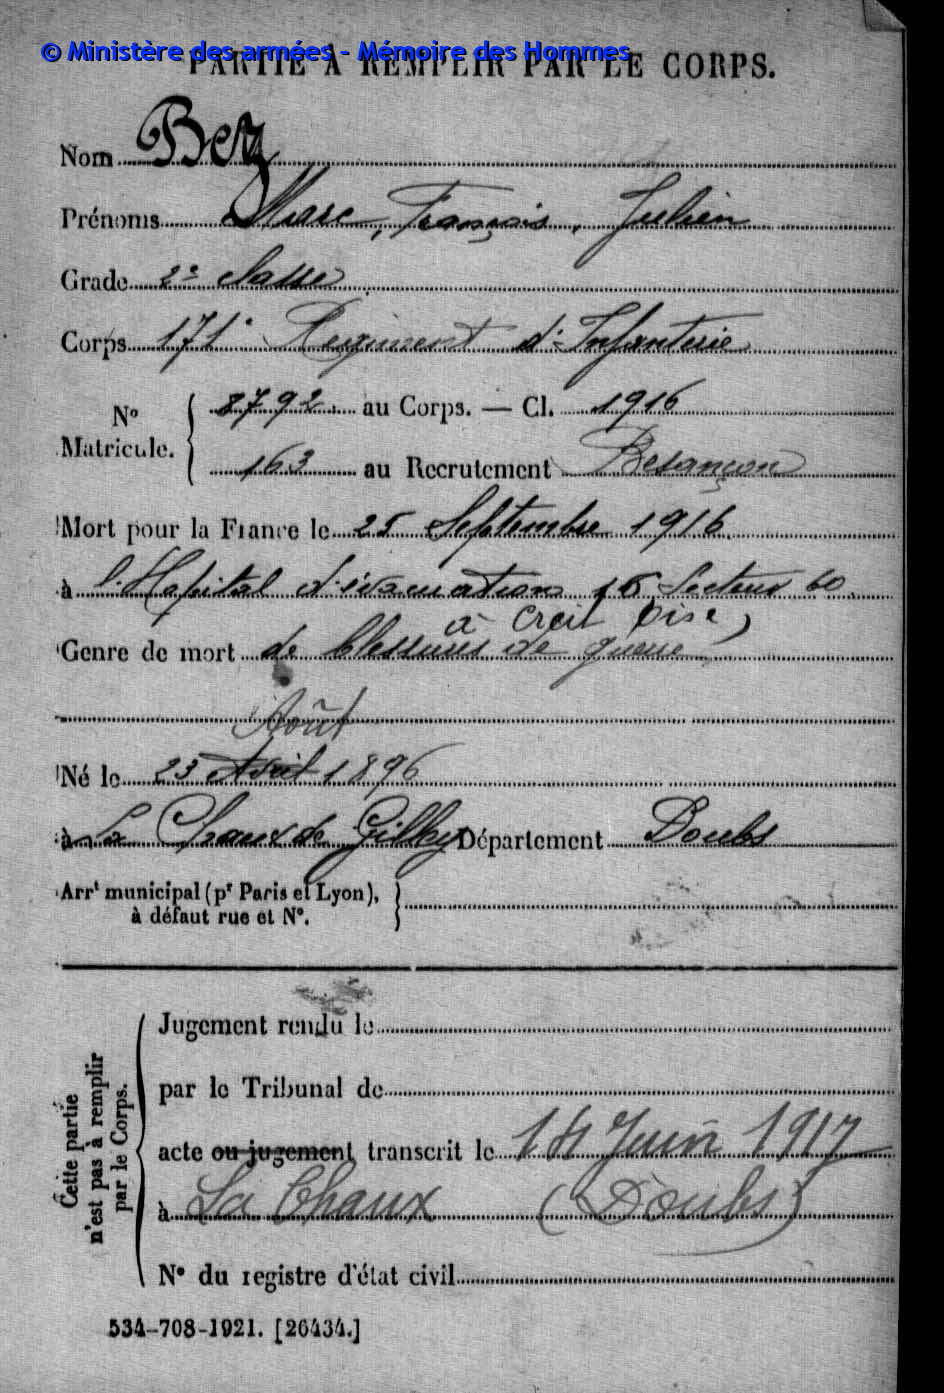 © Ministère des armées - Mémoire des Hommes
PARTIE À REMPLIR PAR LE CORPS.
Nom Bez
Prénoms Marc, François, Julien
Grade 2e classe
Corps 171e Régiment d'Infanterie
No Matricule. { 8792. au Corps. — Cl. 1916
163 au Recrutement Besançon
Mort pour la France le 25 Septembre 1916
à l'Hopital d'évacuation 16 Secteur 60.
à Creil Oise)
Genre de mort de blessures de guerre
Août
Né le 23 Avril 1896
à La Chaux de Gilley Département Doubs
Arrt municipal (pr Paris et Lyon),
à défaut rue et No.
Cette partie
n'est pas à remplir
par le Corps.
Jugement rendu le
par le Tribunal de
acte ou jugement transcrit le 14 Juin 1917
à La Chaux (Doubs)
No du registre d'état civil
534-708-1921. [26434.]